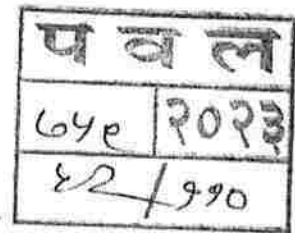 प व ल
७५९ २०२३
/११०